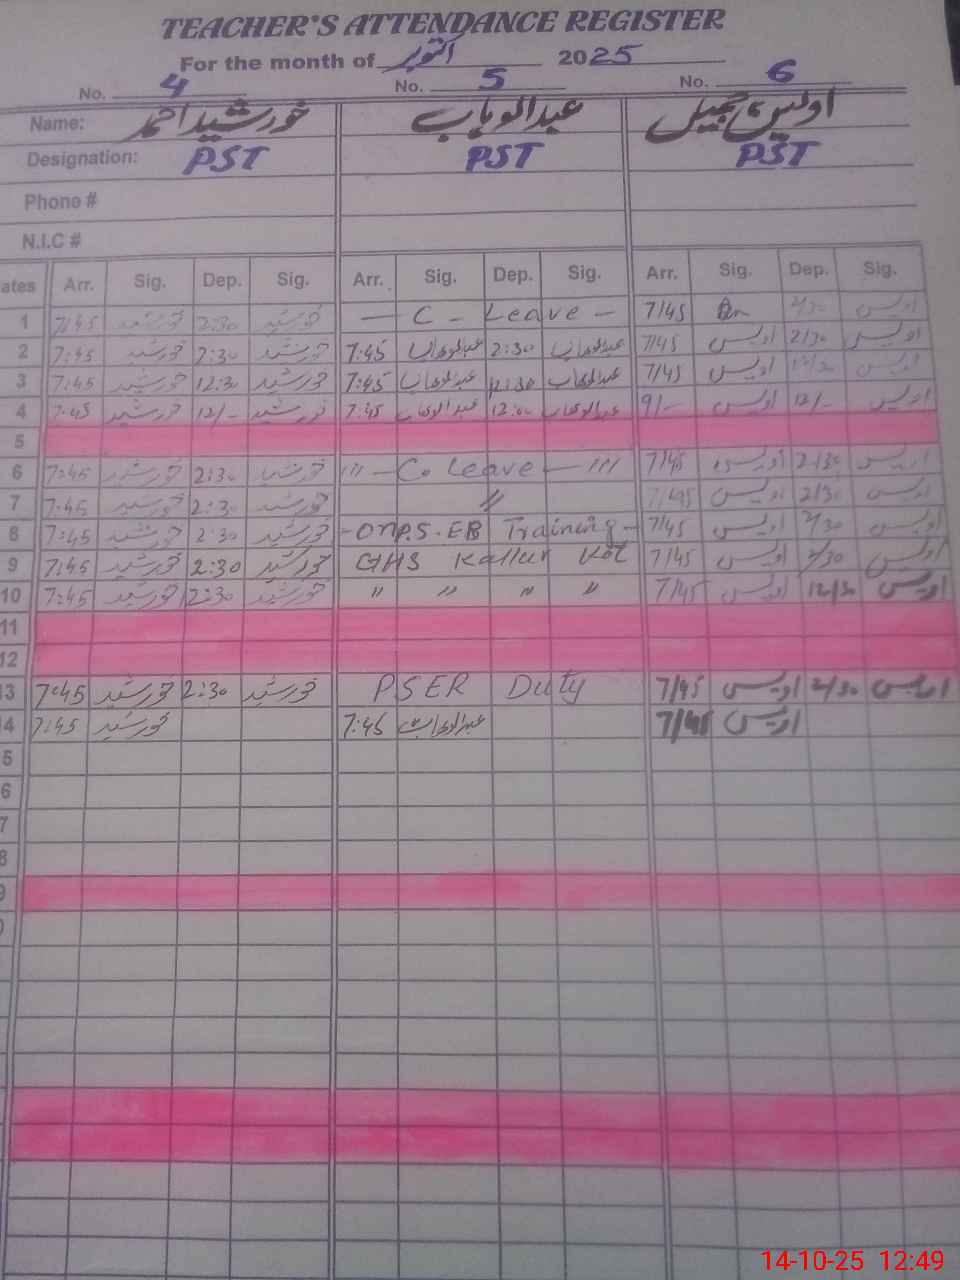 TEACHER'S ATTENDANCE REGISTER
For the month of اکتوبر 2025
No. 4 No. 5 No. 6
Name: خورشید احمد عبدالوہاب اویس جمیل
Designation: PST PST PST
Phone #
N.I.C #
ates Arr. Sig. Dep. Sig. Arr. Sig. Dep. Sig. Arr. Sig. Dep. Sig.
1 7:45 خورشید 2:30 خورشید — C - Leave — 7/45 2/30 اویس
2 7:45 خورشید 2:30 خورشید 7:45 عبدالوہاب 2:30 عبدالوہاب 7/45 اویس 2/30 اویس
3 7:45 خورشید 12:30 خورشید 7:45 عبدالوہاب 12:30 عبدالوہاب 7/45 اویس 12/30 اویس
4 7:45 خورشید 12/- خورشید 7:45 عبدالوہاب 12:00 عبدالوہاب 9/- اویس 12/- اویس
5
6 7:45 خورشید 2:30 خورشید /// — C. Leave — /// 7/45 اویس 2/30 اویس
7 7:45 خورشید 2:30 خورشید // 7/45 اویس 2/30 اویس
8 7:45 خورشید 2:30 خورشید Training 7/45 اویس 2/30 اویس
9 7:45 خورشید 2:30 خورشید GHS Kallur Kot 7/45 اویس 2/30 اویس
10 7:45 خورشید 2:30 خورشید " " " " 7/45 اویس 12/30 اویس
11
12
13 7:45 خورشید 2:30 خورشید PSER Duty 7/45 اویس 2/30 اویس
4 7:45 خورشید 7:45 عبدالوہاب 7/45 اویس
5
6
7
8
9
0
14-10-25 12:49